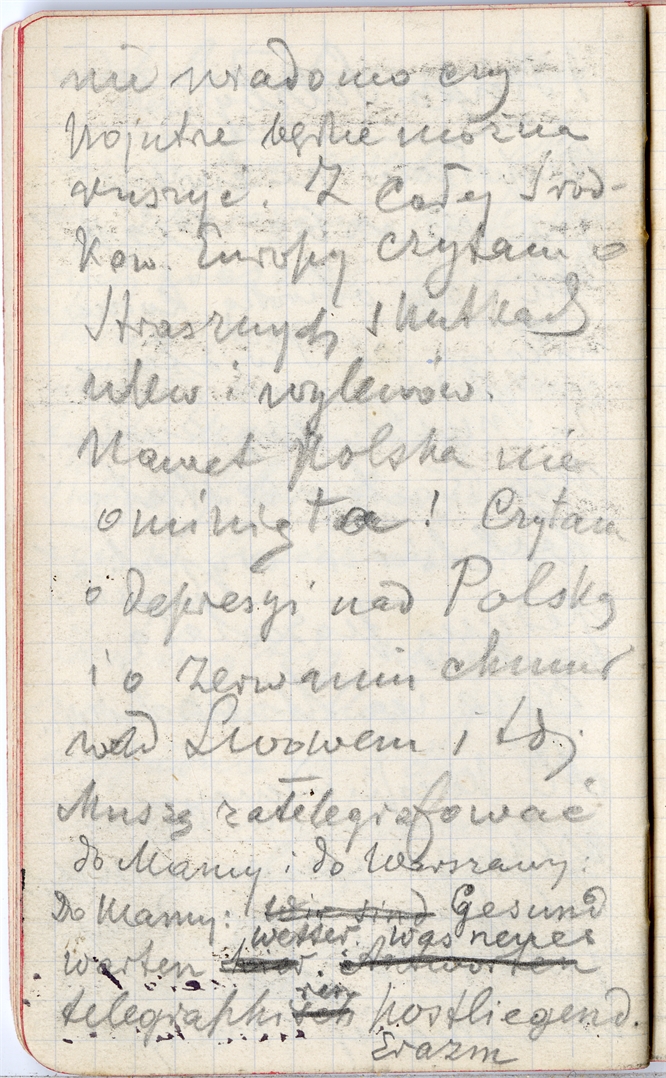 nie wiadomo czy
pojutrze będzie można
ruszyć. Z całej środ-
kow. Europy czytam o
strasznych skutkach
ulew i wylewów.
Nawet Polska nie
ominięta! Czytam
o depresyi nad Polską
i o zerwaniu chmur
nad Lwowem i t d j
Muszę zatelegrafować
do Mamy i do Warszawy:
Do Mamy: Wir sind Gesund
wetter. was neues
warten Antworten
ren
telegraphisch postliegend.
Erazm